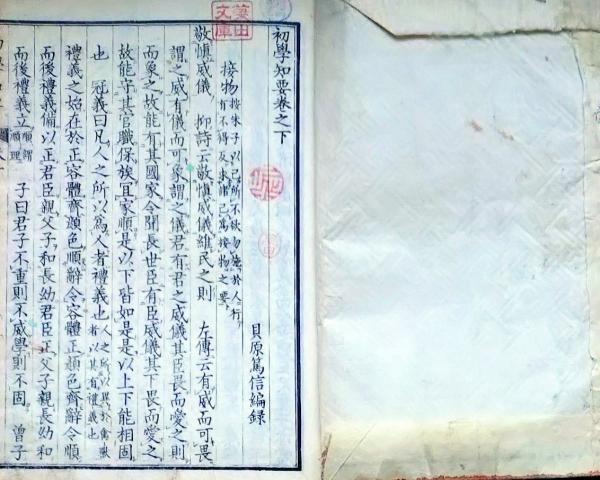 初學知要卷之下
貝原篤信編錄
接物 按朱子以己所不欲勿施於人行
有不得反求諸己爲接物之要
敬愼威儀 抑詩云敬愼威儀維民之則 左傳云有威而可畏
謂之威有儀而可象謂之儀君有君之威儀其臣畏而愛之則
而象之故能有其國家令聞長世臣有臣威儀其下畏而愛之
故能守其官職保族宜家順是以下皆如是是以上下能相固
也 冠義曰凡人之所以爲人者禮義也 人之所以異於禽獸
者以其有禮義也
禮義之始在於正容體齊顏色順辭令容體正顏色齊辭令順
而後禮義備以正君臣親父子和長幼君臣正父子親長幼和
而後禮義立 順謂
順理 子曰君子不重則不威學則不固 曾子
文庫